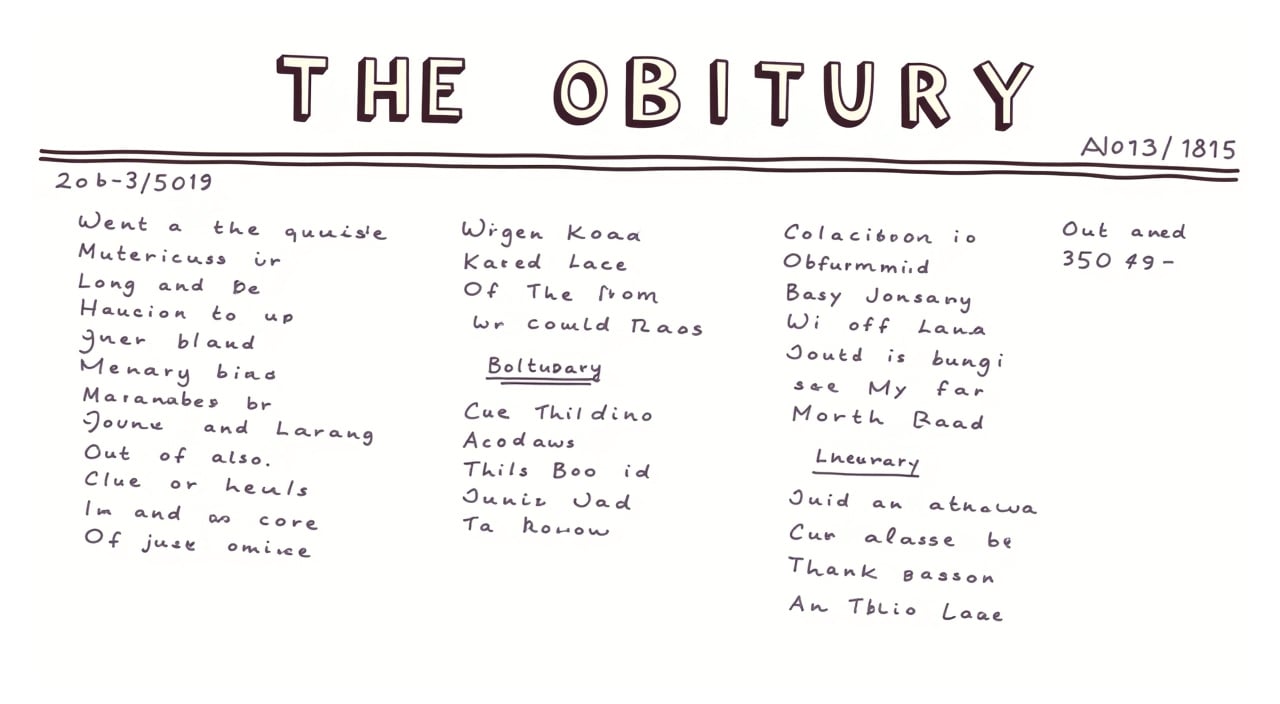 THE OBITURY
No13/1815
2ob-3/5019
Went a the
Mutericuss ir
Long and De
Haucion to up
Jner bland
Menary bias
Maranabes br
Joune and Larang
Out of also.
Clue or heuls
Im and as core
Of just omince
Wrgen Koaa
Kared Lace
Of The from
Wr could Raos
Boltudary
Cue Thildino
Acodaws
Thils Boo id
Juniz Jad
Ta Rouow
Colaciboon io
Obfurmmiid
Basy Jonsary
Wi off Lana
Joutd is bungi
see My far
Morth Raad
Lneurary
Juid an atnawa
Cur alasse be
Thank Basson
An TbLio Laae
Out aned
350 49-